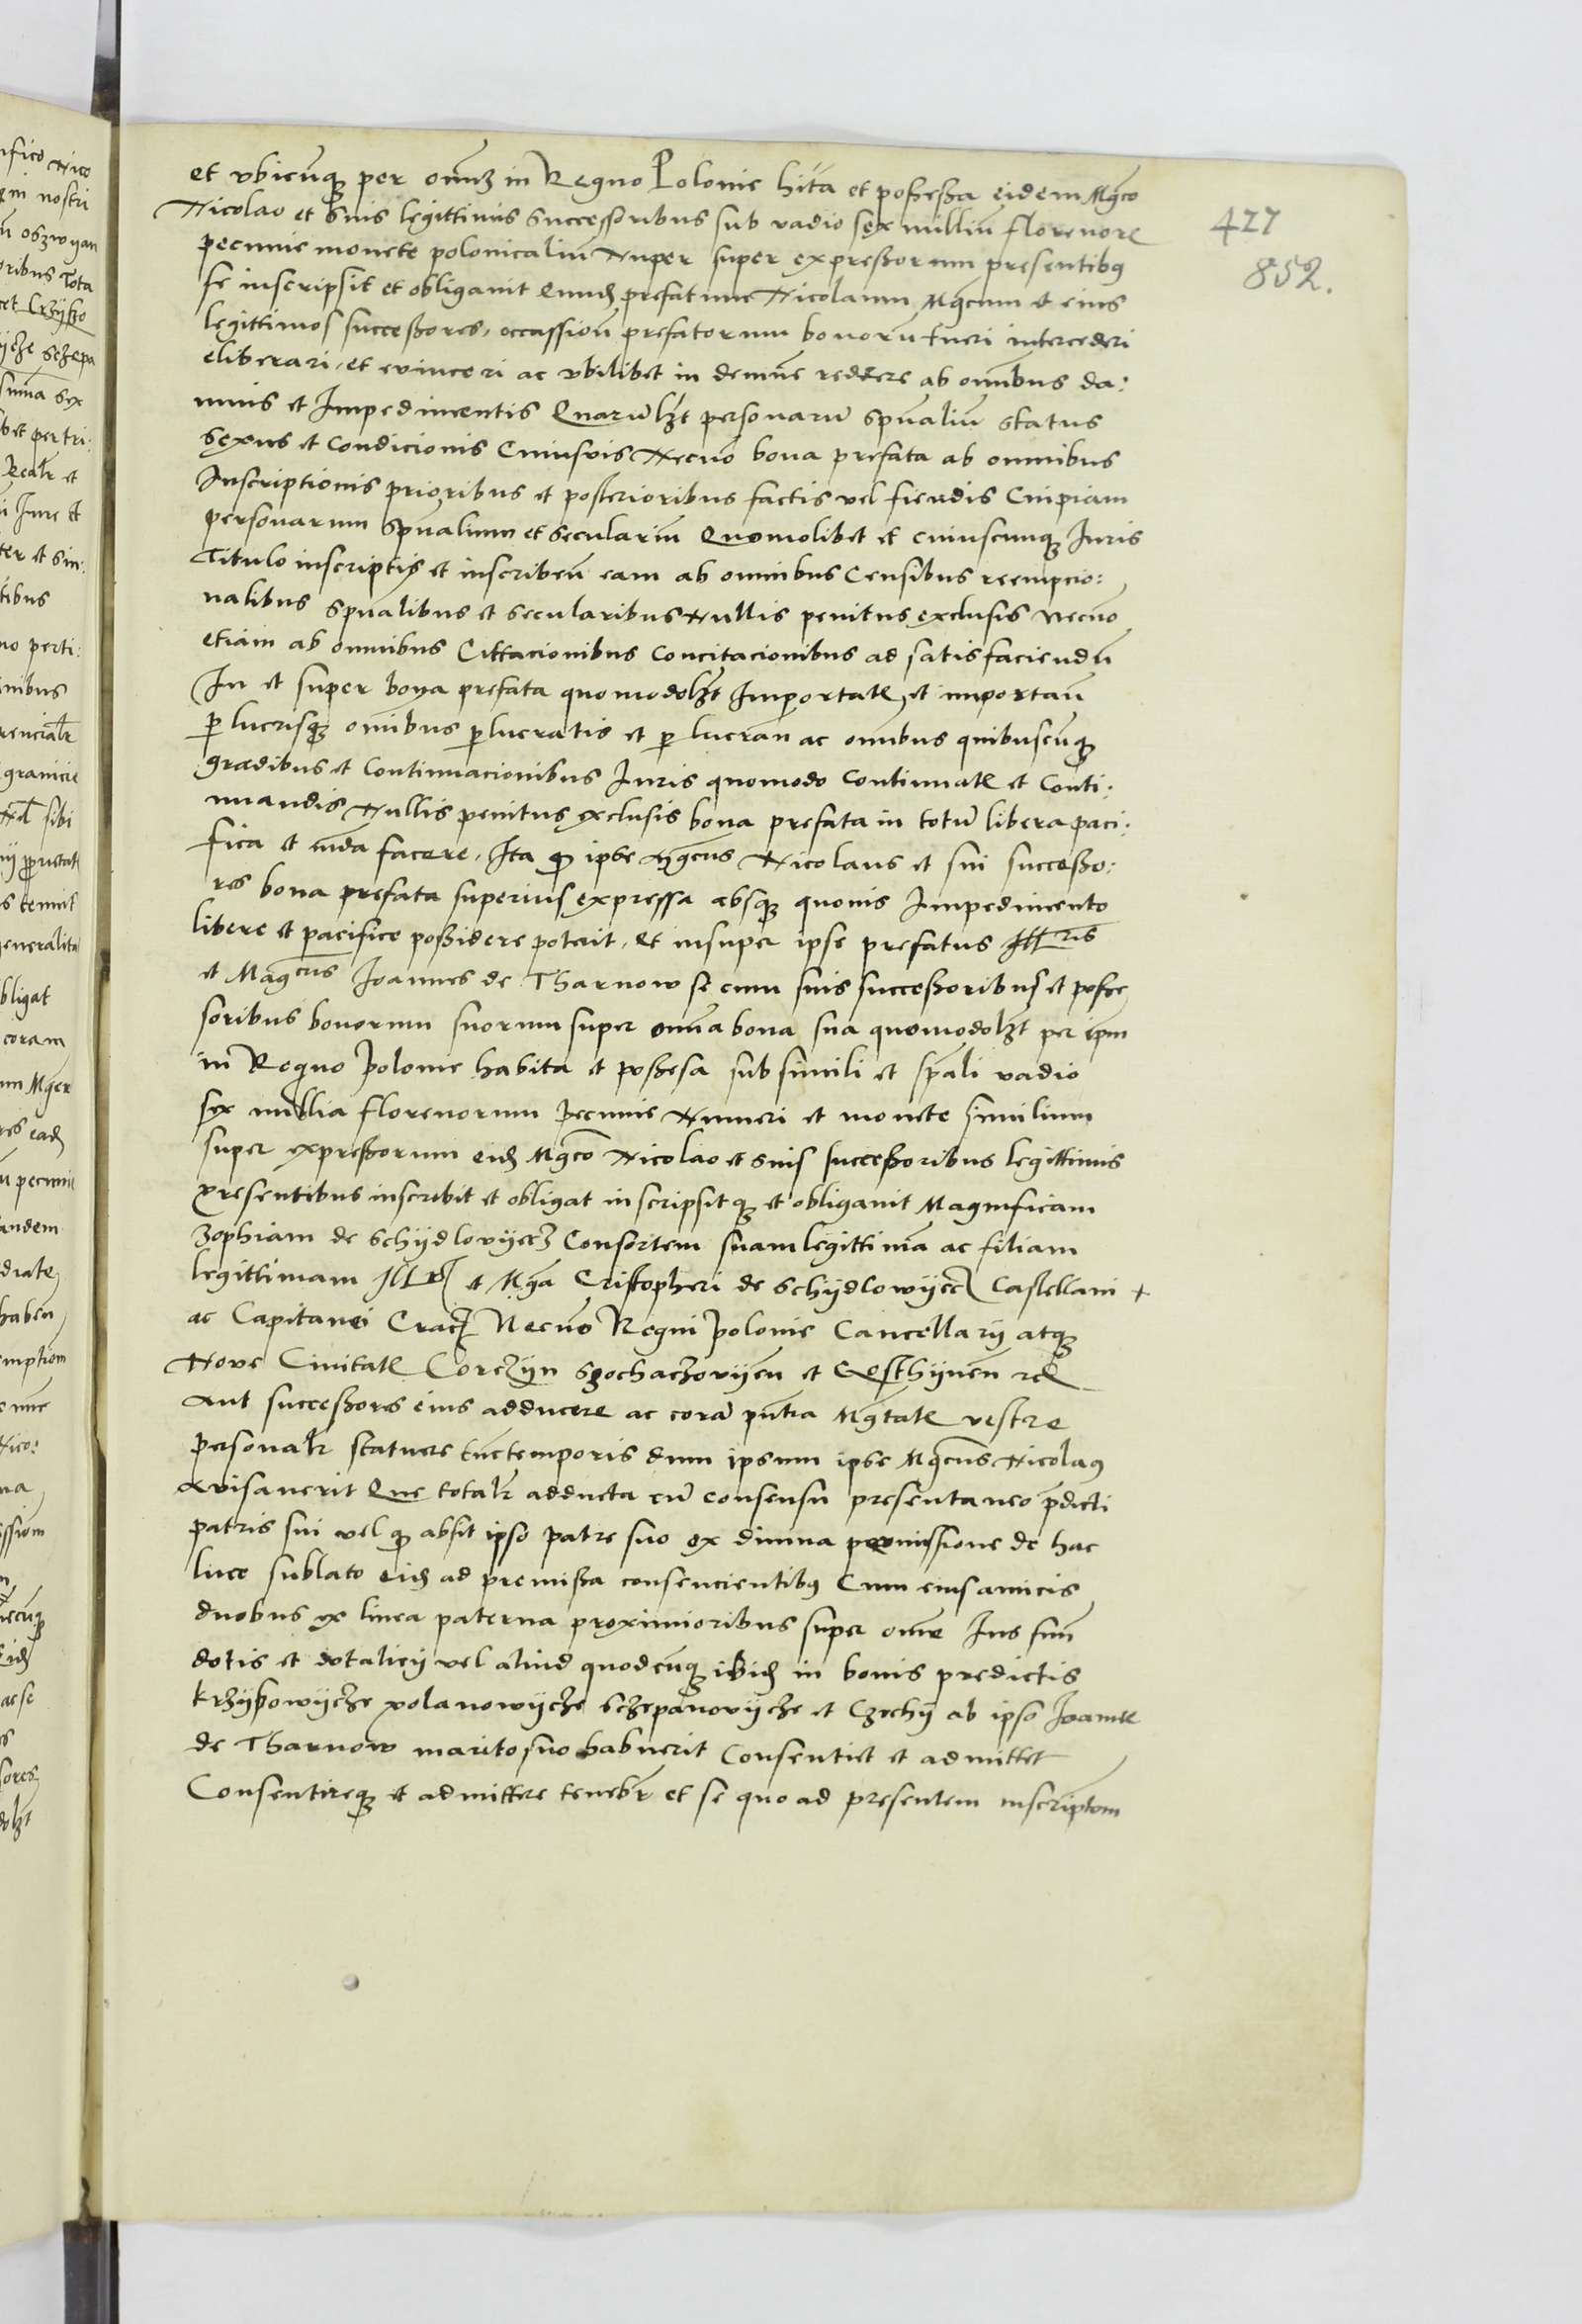 et vbicūq3 per oīm3 in Regno Polonie hīta et possessa eidem Mgco
Nicolao et Suis legittimis Successoribus sub vadio sex milliū florenor
pecunie monete polonicaliū Nuper super expressorum presentib9
se inscripsit et obligavit Eund prefatum Nicolaum Mgcum et eius
legittimos successores, occassioñ prefatorum bonorū tueri intercederi
eliberari, et evinceri ac vbilibet in demne reddere ab omībus da:
mnis et Impedimentis Quarūlzt personarū spūaliū status
sexus et Condicionis Cuiusvis Necnō bona prefata ab omnibus
Inscriptionis prioribus et posterioribus factis vel fiendis Cuipiam
personarum Spūalium et Seculariū Quomolibet et cuiuscunq3 Iuris
Titulo inscriptis et inscribeñ eam ab omnibus Censibus reempcio:
nalibus Spūalibus et Secularibus Nullis penitus exclusis Necnō
etiam ab omnibus Cittacionibus Concitacionibus ad satisfaciendū
In et super bona prefata quomodolzt Importatē et importañ
p lucrisq3 omībus plucratis et p lucrañ ac omībus quibuscūq3
gradibus et Continuacionibus Iuris quomodo Continuatē et Conti:
nuandis Nullis penitus exclusis bona prefata in totū libera paci:
fica et mda facere. Ita q ipse Mgcus Nicolaus et sui successo:
res bona prefata superius expressa absq3 quovis Impedimento
libere et pacifice possidere poterit, et insuper ipse prefatus Illris
et Magcus Joannes de Tharnow se cum suis successoribus et posse
soribus bonorum suorum super omīa bona sua quomodolzt per ipm
in Regno Polonie habita et possesa sub simili et spali vadio
sex millia florenorum pecunie Numeri et monete similium
super expressorum eid Mgco Nicolao et Suis successoribus legittimis
presentibus inscribit et obligat inscripsitq3 et obligavit Magnificam
Zophiam de Schydlovyecz Consortem suam legittimā ac filiam
legittimam Illrs et Mgci Cristopheri de Schydlowyecz Castellani +
ac Capitanei Crac Necnō Regni Polonie Cancellary atq3
Nove Civitatē Corczyn Szochaczovyeñ et Gosthyneñ rcl
Aut successores eius adducere ac corā pntia Mgtatē vestre
personalr statuere tūctemporis dum ipsum ipse Mgcus Nicola9
Avisaverit Que totalr adducta cū consensu presentaneo pdicti
patris sui vel q absit ipso patre suo ex divina permissione de hac
luce sublato eid ad premissa consencientib9 Cum eius amicis
duobus ex linea paterna proximioribus super omē Ius suū
dotis et dotalicy vel aliud quodcūq3 ibid in bonis predictis
krzyszowycze volanowycze Sczepanovycze et Czechy ab ipso Joanne
de Tharnow marito suo habuerit Consentiet et admittet
Consentireq3 et admittere tenebr et se quo ad presentem inscriptom
427
852.